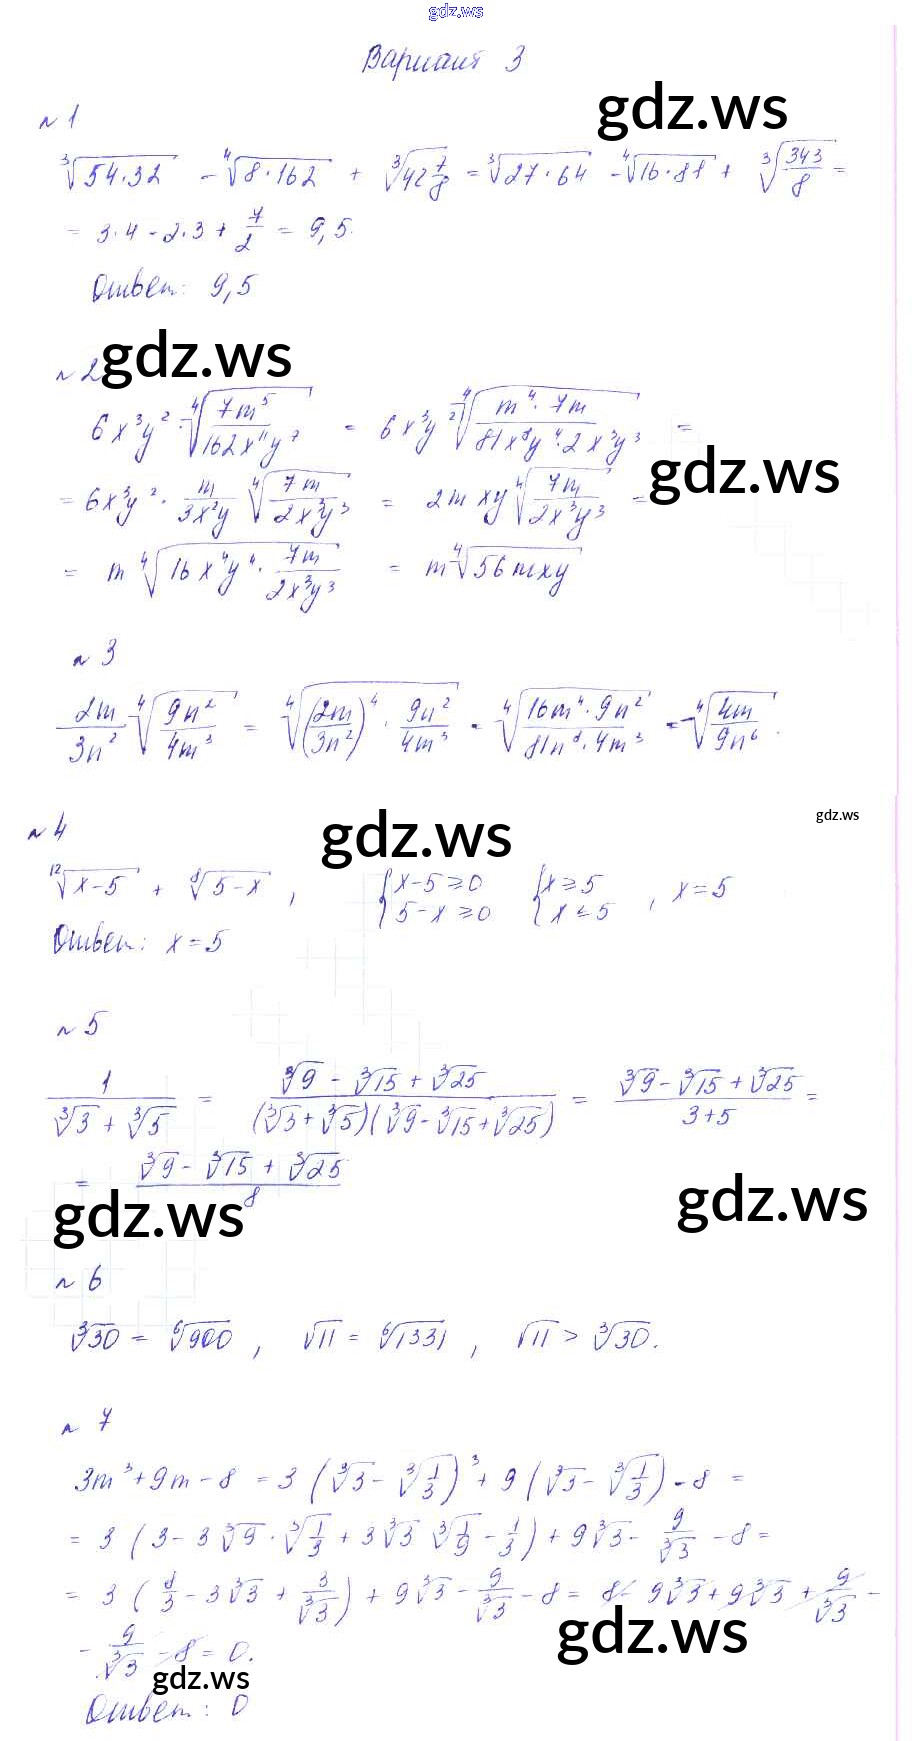 gdz.ws
Вариант 3
gdz.ws
№ 1
∛(54·32) - ∜(8·162) + ∛(42 7/8) = ∛(27·64) - ∜(16·81) + ∛(343/8) =
= 3·4 - 2·3 + 7/2 = 9,5.
Ответ: 9,5
gdz.ws
№ 2
6x³y² · ∜(7m⁵/162x¹¹y⁷) = 6x³y² ∜(m⁴·7m/81x⁸y⁴·2x³y³) =
gdz.ws
= 6x³y² · m/3x²y ∜(7m/2x³y³) = 2mxy ∜(7m/2x³y³) =
= m ∜(16x⁴y⁴ · 7m/2x³y³) = m∜(56mxy)
№ 3
2m/3n² ∜(9n²/4m³) = ∜((2m/3n²)⁴ · 9n²/4m³) = ∜(16m⁴·9n²/81n⁸·4m³) = ∜(4m/9n⁶).
gdz.ws
gdz.ws
№ 4
¹²√(x-5) + ⁸√(5-x) , { x-5≥0 5-x≥0 { x≥5 x≤5 , x=5
Ответ: x=5
№ 5
1/(∛3 + ∛5) = (∛9 - ∛15 + ∛25)/((∛3+∛5)(∛9-∛15+∛25)) = (∛9-∛15+∛25)/(3+5) =
= (∛9 - ∛15 + ∛25)/8
gdz.ws
gdz.ws
№ 6
∛30 = ⁶√900 , √11 = ⁶√1331 , √11 > ∛30.
№ 7
3m³+9m-8 = 3(∛3 - ∛(1/3))³ + 9(∛3 - ∛(1/3)) - 8 =
= 3(3 - 3∛9 · ∛(1/3) + 3∛3 ∛(1/9) - 1/3) + 9∛3 - 9/∛3 - 8 =
= 3(8/3 - 3∛3 + 3/∛3) + 9∛3 - 9/∛3 - 8 = 8 - 9∛3 + 9∛3 + 9/∛3 -
gdz.ws
- 9/∛3 - 8 = 0.
gdz.ws
Ответ: 0